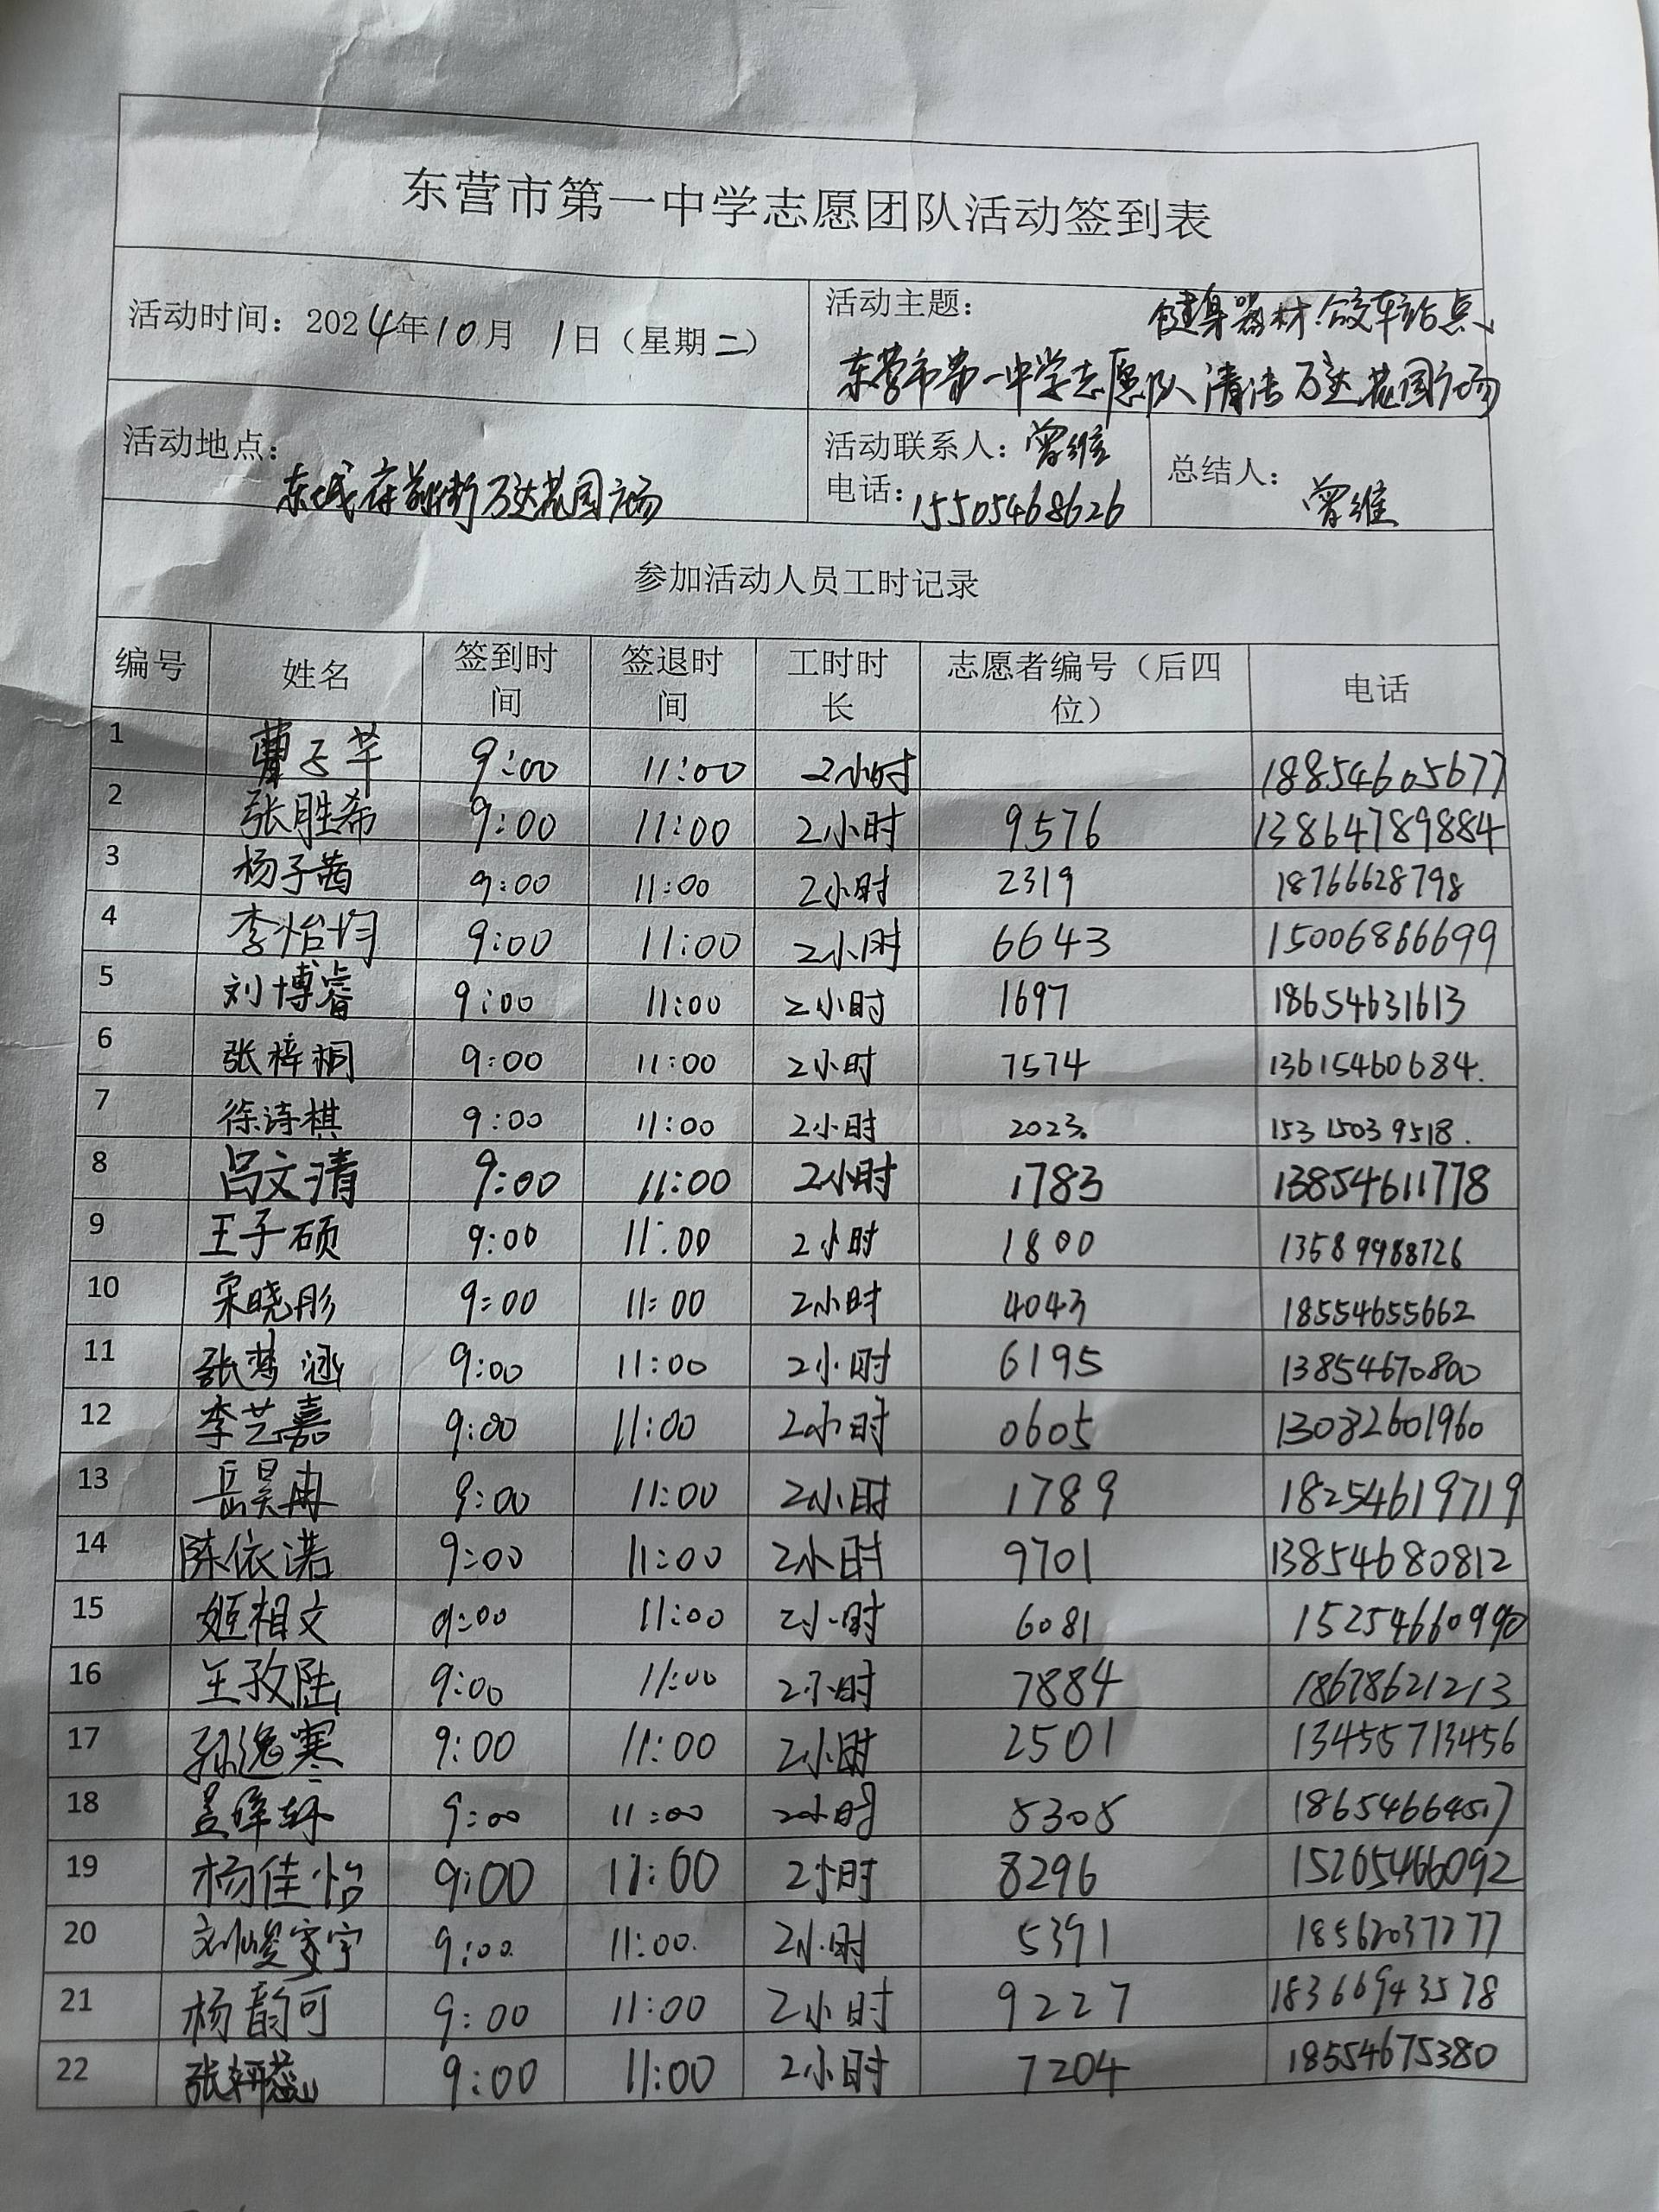 东营市第一中学志愿团队活动签到表
活动时间：2024年10月 1日（星期二）
活动主题： 健身器材、公交车站点、
东营市第一中学志愿队清洁万达花园广场
活动地点：
东城府前街万达花园广场
活动联系人：曾维
电话：15505468626
总结人：曾维
参加活动人员工时记录
编号 姓名 签到时间 签退时间 工时时长 志愿者编号（后四位） 电话
1 曹子芊 9:00 11:00 2小时 18854605677
2 张胜希 9:00 11:00 2小时 9576 13864789884
3 杨子茜 9:00 11:00 2小时 2319 18766628798
4 李怡均 9:00 11:00 2小时 6643 15006866699
5 刘博睿 9:00 11:00 2小时 1697 18654631613
6 张梓桐 9:00 11:00 2小时 7574 13615460684.
7 徐诗棋 9:00 11:00 2小时 2023. 15315039518.
8 吕文清 9:00 11:00 2小时 1783 13854611778
9 王子硕 9:00 11:00 2小时 1800 13589988726
10 宋晓彤 9:00 11:00 2小时 4043 18554655662
11 张梦涵 9:00 11:00 2小时 6195 13854670800
12 李艺嘉 9:00 11:00 2小时 0605 13082601960
13 岳昊冉 9:00 11:00 2小时 1789 18254619719
14 陈依诺 9:00 11:00 2小时 9701 13854680812
15 姬相文 9:00 11:00 2小时 6081 15254660990
16 王孜陆 9:00 11:00 2小时 7884 18678621213
17 孙逸寒 9:00 11:00 2小时 2501 13455713456
18 9:00 11:00 2小时 5305 18654664517
19 杨佳怡 9:00 11:00 2小时 8296 15265466092
20 9:00. 11:00. 2小时 5391 18562037277
21 杨韵可 9:00 11:00 2小时 9227 18366943578
22 张妍蕊 9:00 11:00 2小时 7204 18554675380